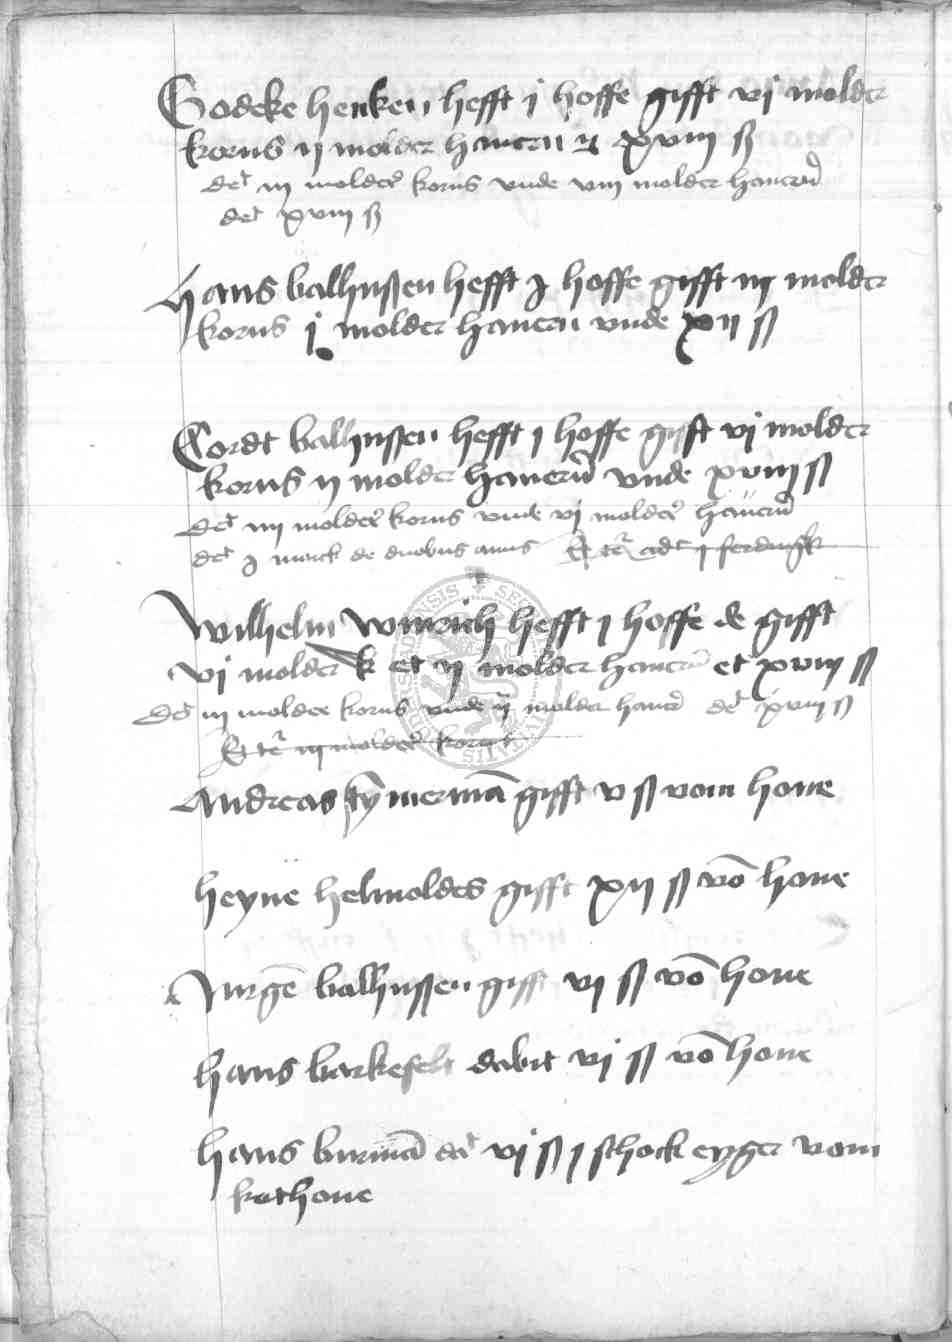 Godeke henken hefft j hoffe gifft vj molder
korns ij molder hauern vnde xviij ß
det iij molder korns vnde viij molder hauern
det xviij ß
Hans ballhussen hefft j hoffe gifft iij molder
korns j molder hauern vnde xij ß
Cordt ballhussen hefft j hoffe gifft vj molder
korns ij molder hauern vnde xviij ß
det iiij molder korns vnde vj molder hauern
det j marck de duobus annis
Wilhelm hefft j hoffe de gifft
vj molder k et ij molder hauern et xviij ß
det iij molder korns vnde ij molder hauern det xviij ß
iij molder korns
Andreas tymerman gifft v ß vom houe
heyne helmoldes gifft xij ß vō houe
Jurgē ballhussen gifft vj ß vō houe
hans barkefelt dabit vj ß vō houe
hans burmā det vj ß j schock eyger vom
kothoue